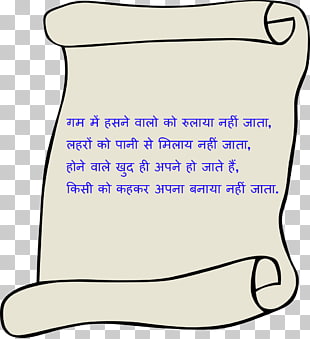 गम में हसने वालो को रुलाया नहीं जाता,
लहरों को पानी से मिलाय नहीं जाता,
होने वाले खुद ही अपने हो जाते हैं,
किसी को कहकर अपना बनाया नहीं जाता.